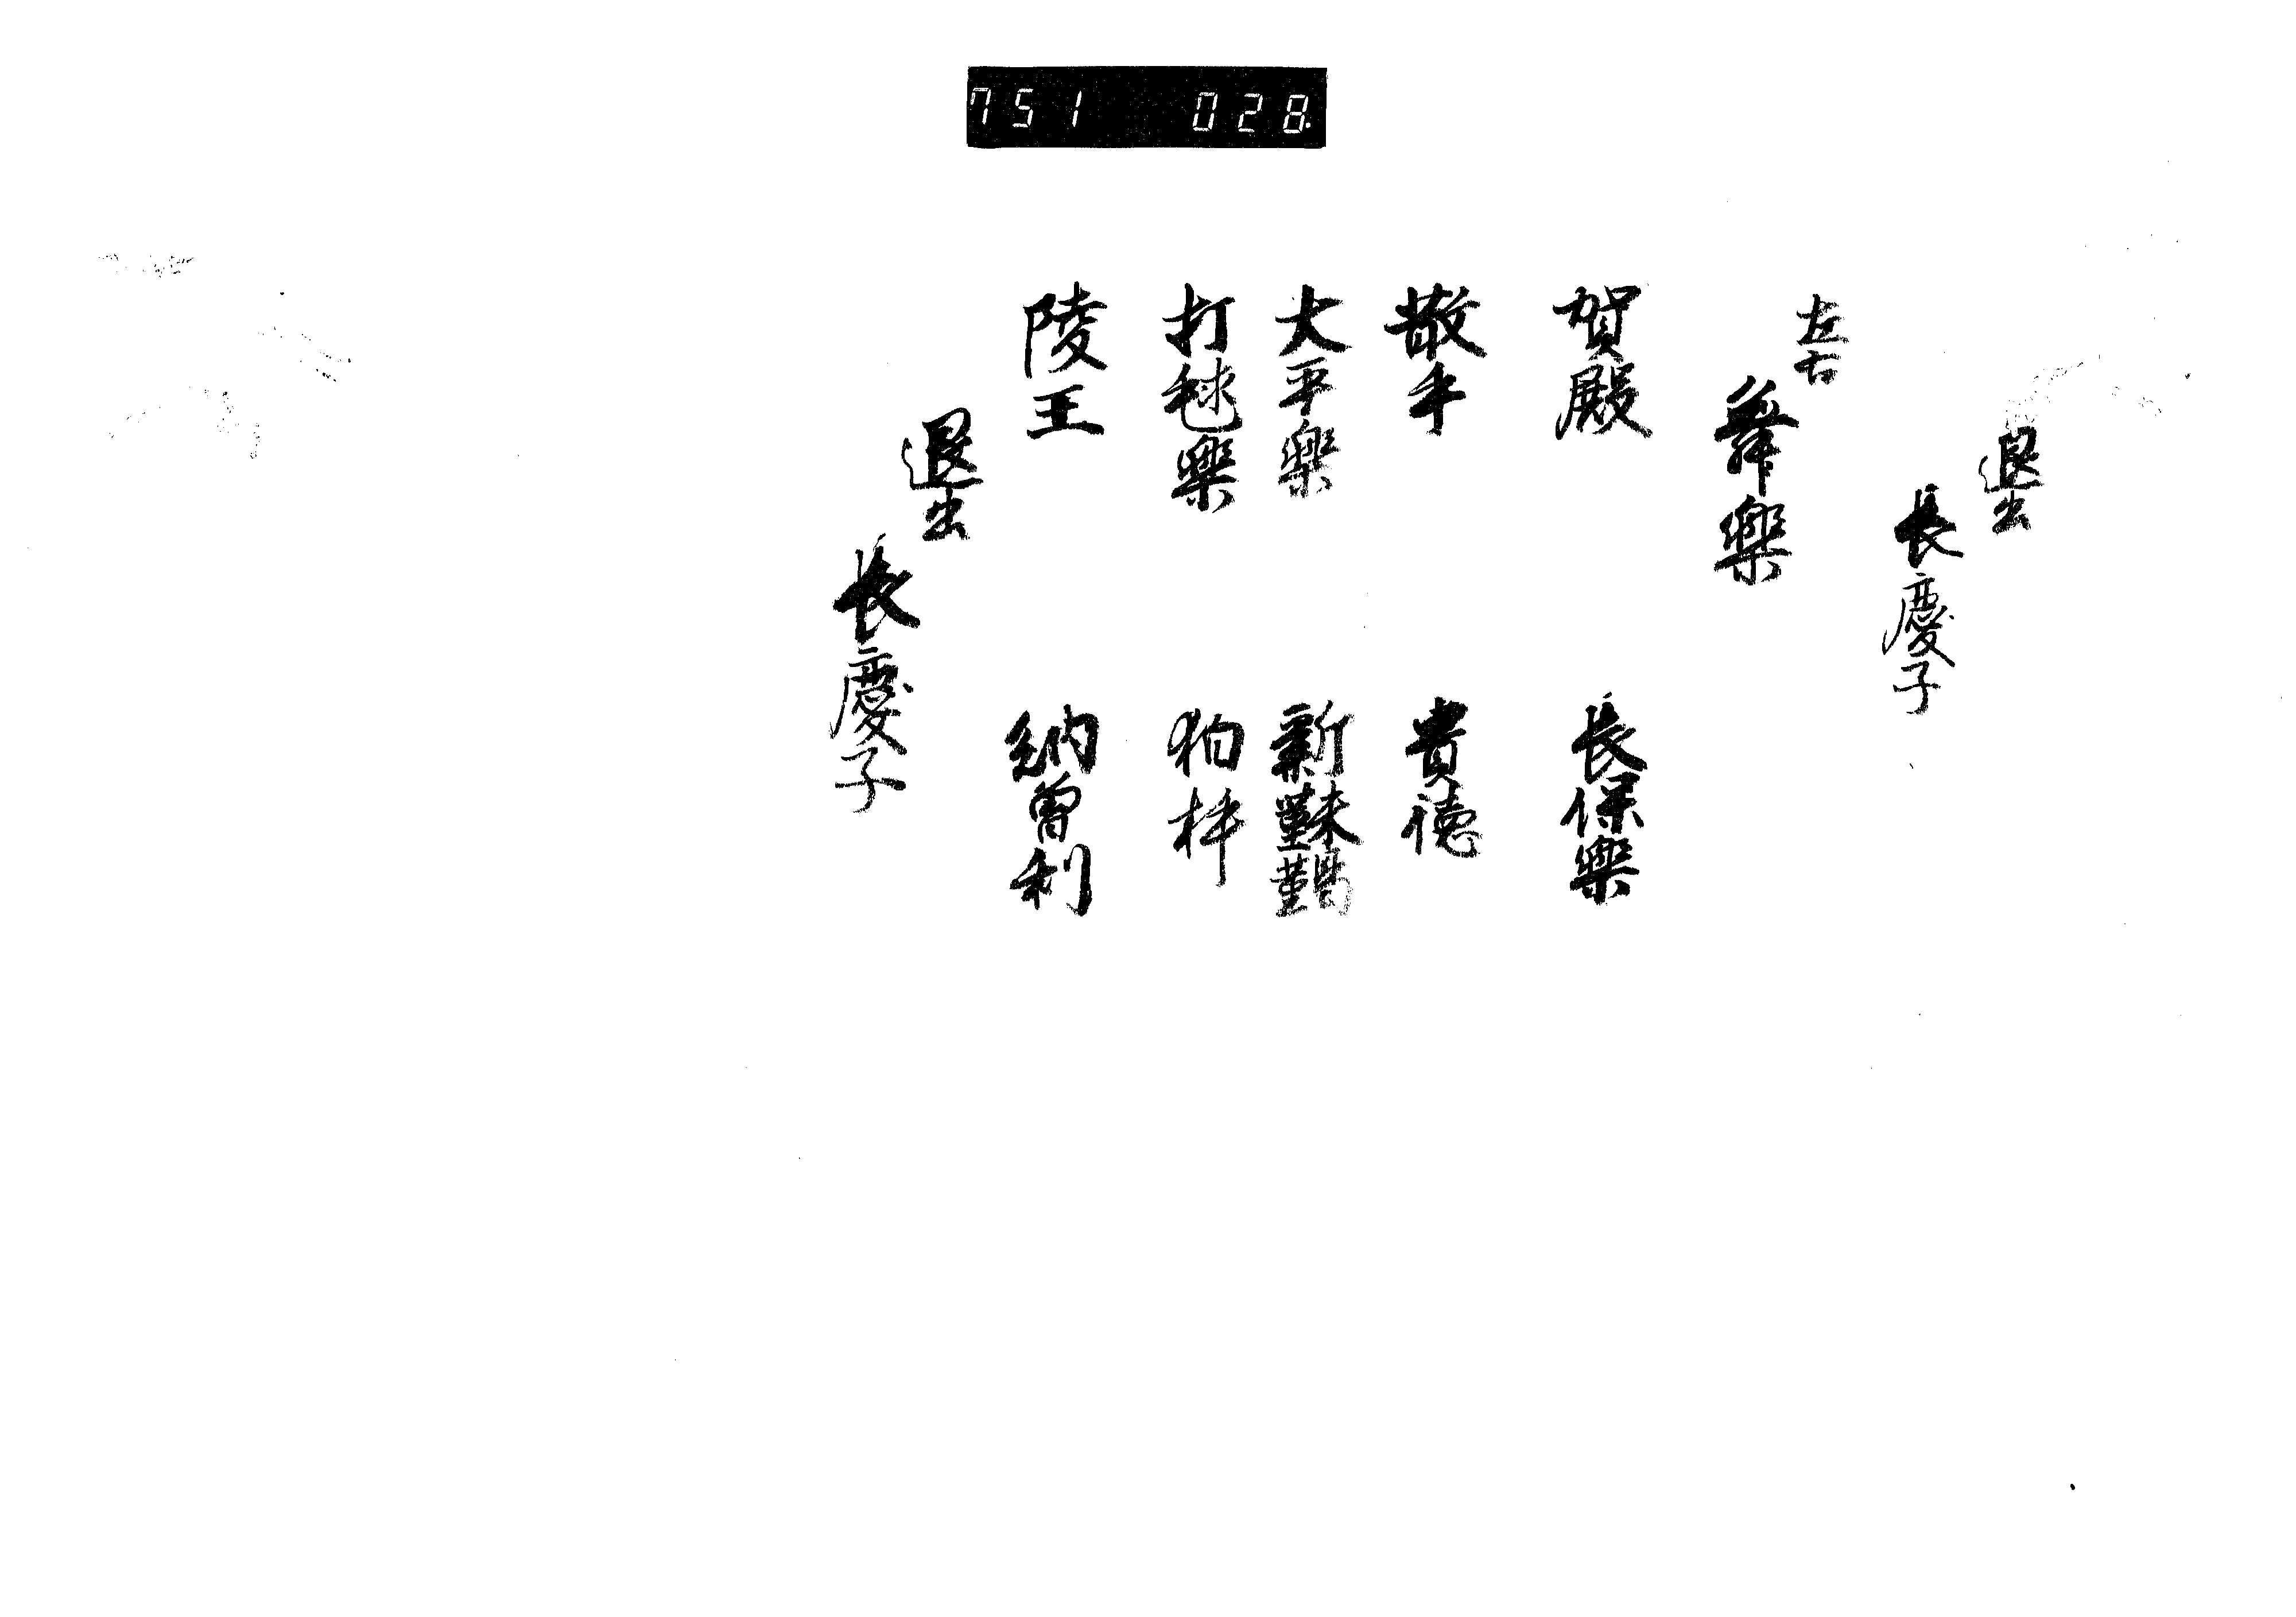 751 028
退出
長慶子
左右
舞樂
賀殿 長保樂
散手 貴徳
大平樂 新靺鞨
打毬樂 狛桙
陵王 納曽利
退出
長慶子